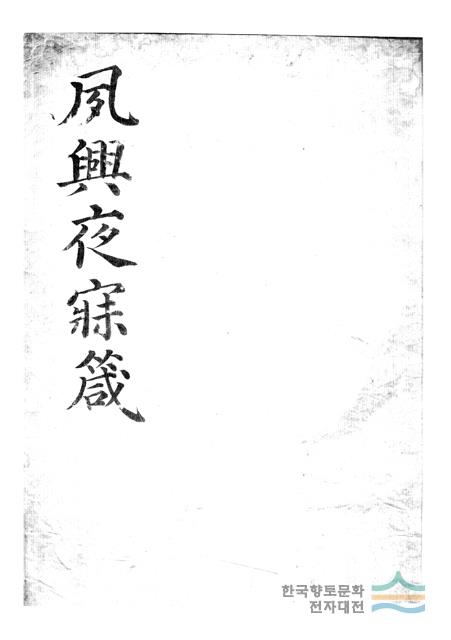 夙興夜寐箴
한국향토문화
전자대전